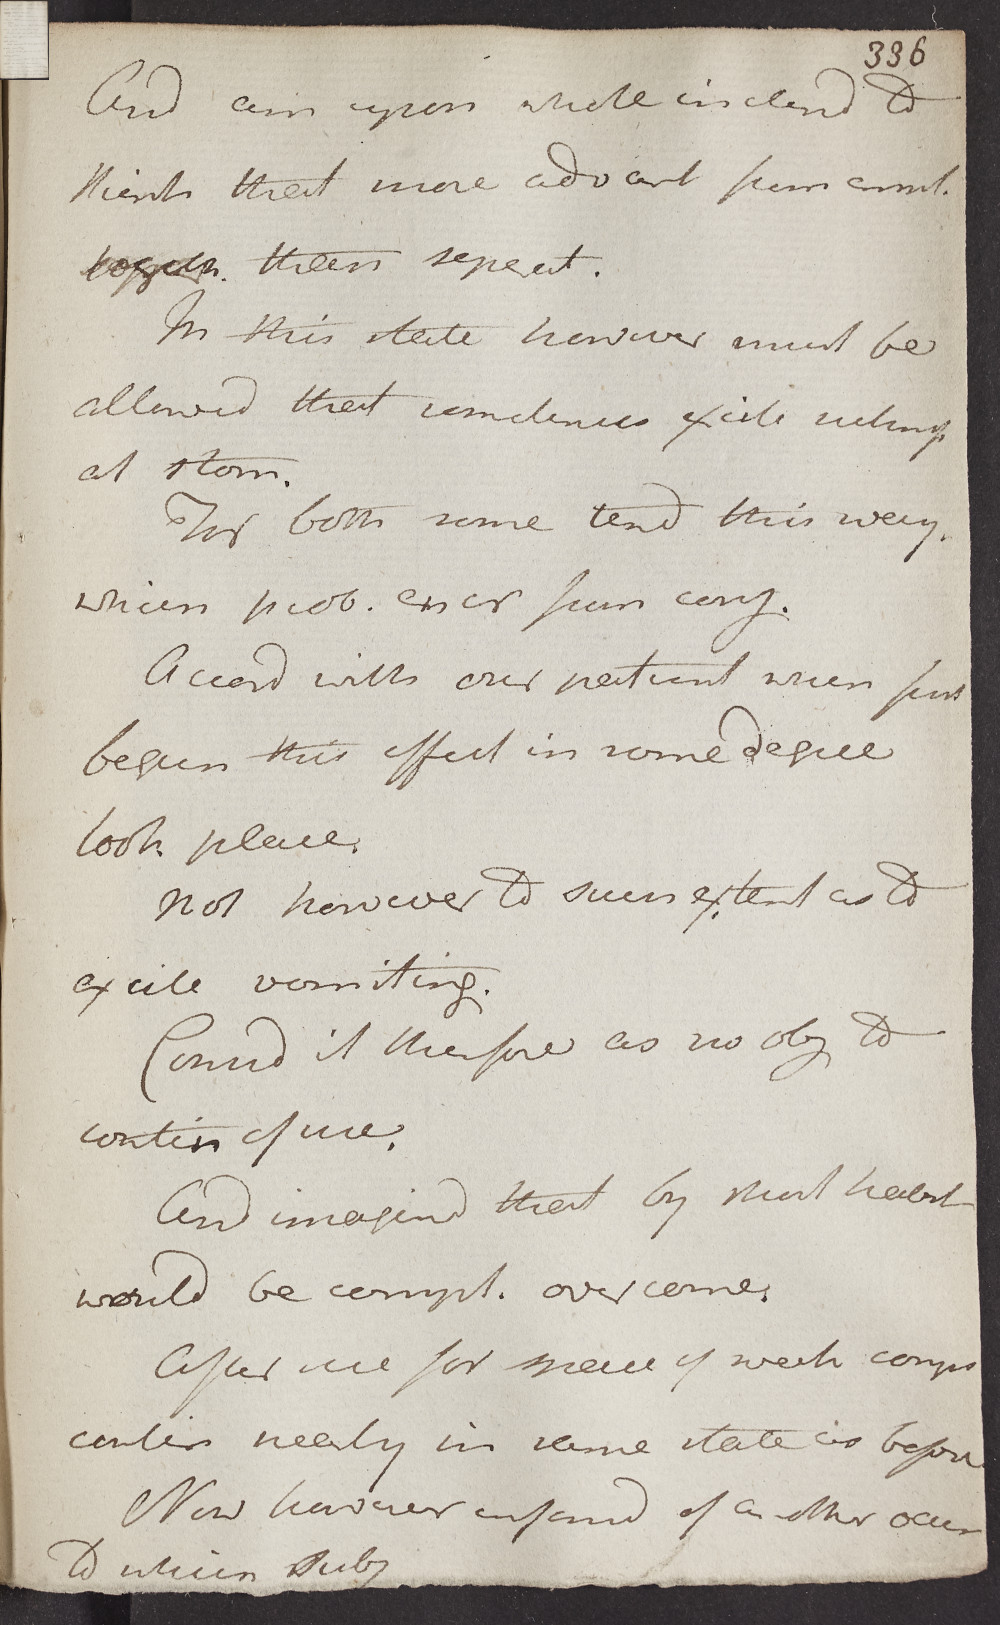 336
And am upon whole inclend to
think that more advant from comb.
togeth. than seperat.
In this state however must be
allowed that sometimes excite retchng
at stom.
For both some tend this way.
which prob. encr from conj.
Accord with our patient when first
begun this effect in some degree
took place.
Not however to such extent as to
excite vomiting.
Consid it therefore as no obj to
contin of use.
And imagind that by short habit
would be compl. overcome.
After use for space of week comps
contin nearly in same state as before
Now however informd of another occur
to which subj